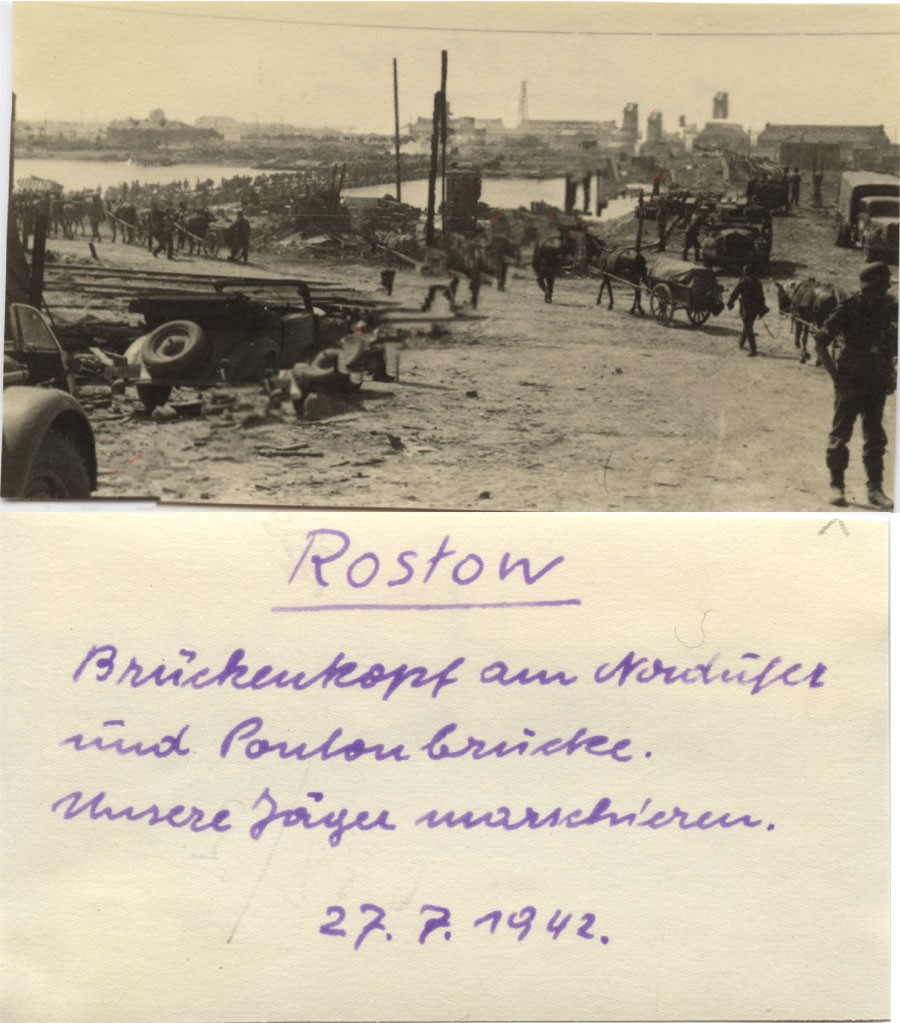 Rostow
Brückenkopf am Nordufer
und Pontonbrücke.
Unsere Jäger marschieren.
27.7.1942.